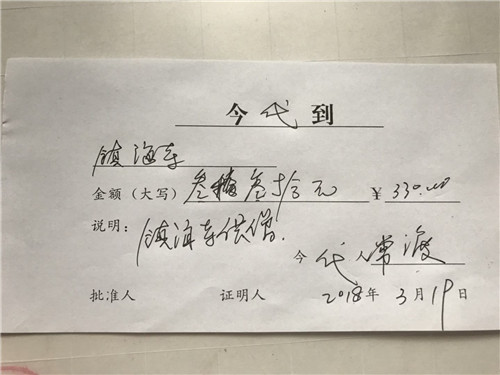 今代到
镇海寺
金额（大写）叁佰叁拾元 ¥ 330.00
说明：镇海寺供僧.
今代人常浚
批准人 证明人 2018年3月19日